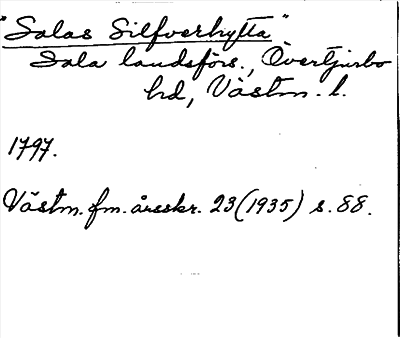 "Salas Silfverhytta"
Sala landsförs., Övertjurbo
hd, Västm. l.
1797.
Västm. fm. årsskr. 23 (1935) s. 88.